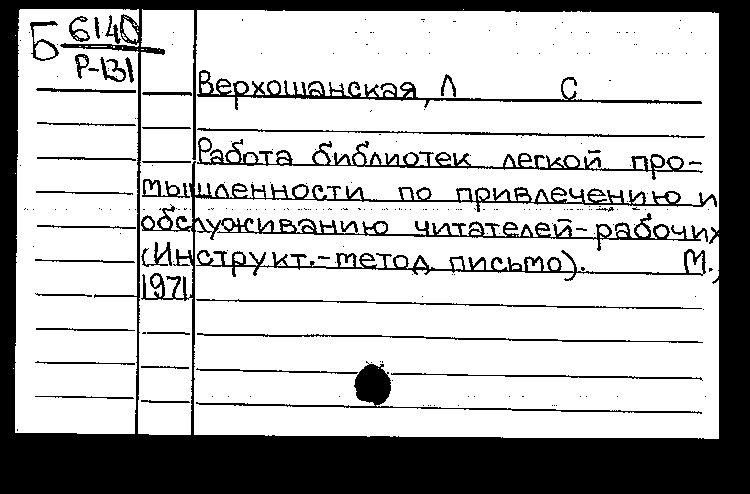 Б 6140
Р-131
Верхошанская, Л С
Работа библиотек легкой про-
мышленности по привлечению и
обслуживанию читателей-рабочих
(Инструкт.-метод. письмо). М.,
1971.